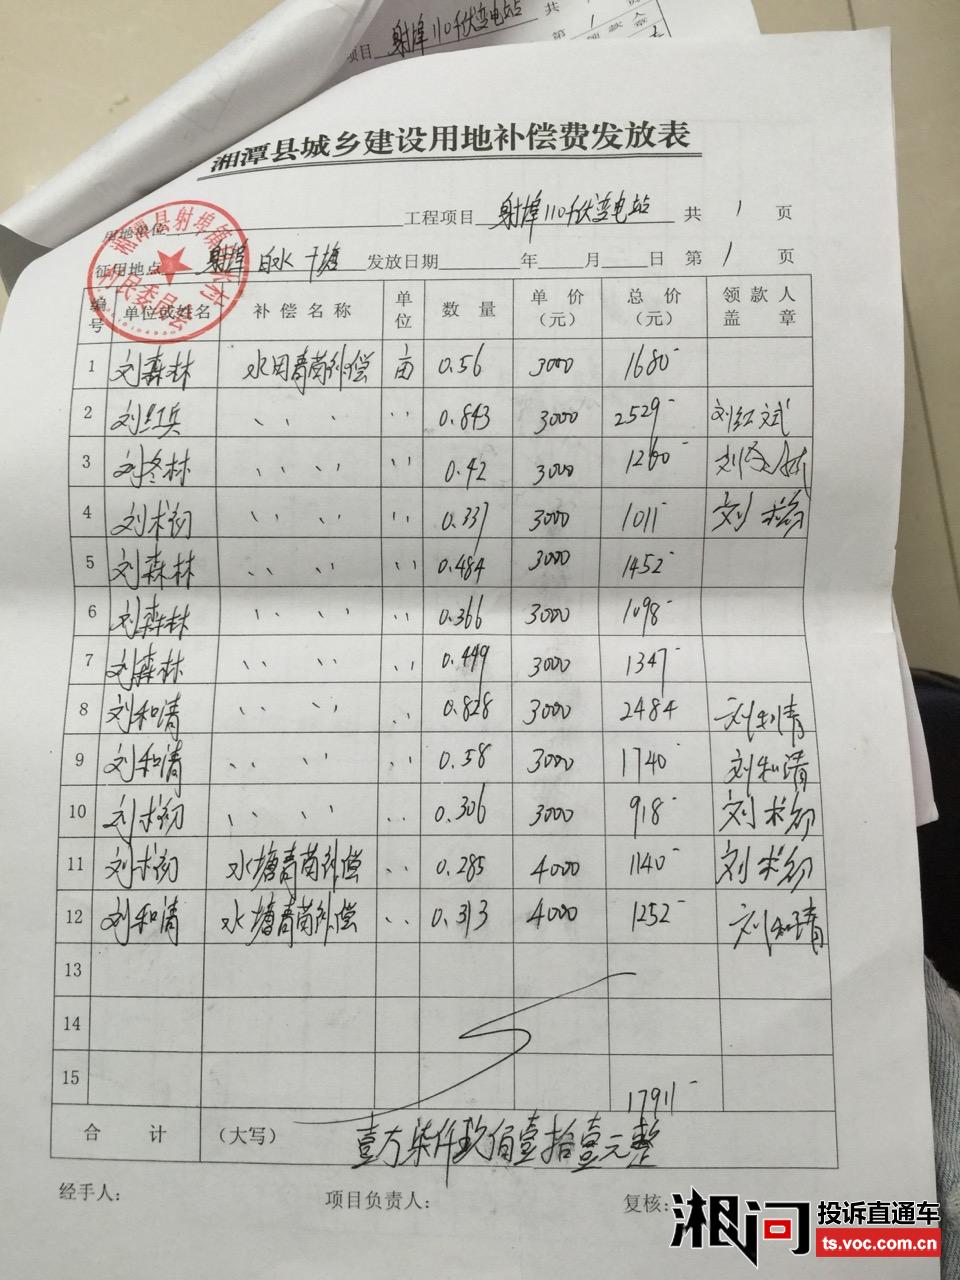 项目 射埠110千伏变电站 共
第 1
湘潭县城乡建设用地补偿费发放表
用地单位 工程项目 射埠110千伏变电站 共 1 页
征用地点 射埠 白水 干塘 发放日期 年 月 日 第 1 页
编号 单位或姓名 补偿名称 单位 数量 单价（元） 总价（元） 领款人盖章
1 刘森林 水田青苗补偿 亩 0.56 3000 1680-
2 刘红兵 、、 、、 0.843 3000 2529- 刘红斌
3 刘冬林 、、 、、 0.42 3000 1260- 刘冬林
4 刘术初 、、 、、 0.337 3000 1011- 刘术初
5 刘森林 、、 、、 0.484 3000 1452-
6 刘森林 、、 、、 0.366 3000 1098-
7 刘森林 、、 、、 0.449 3000 1347-
8 刘和清 、、 、、 0.828 3000 2484- 刘和清
9 刘和清 、、 、、 0.58 3000 1740- 刘和清
10 刘术初 、、 、、 0.306 3000 918- 刘术初
11 刘术初 水塘青苗补偿 、、 0.285 4000 1140- 刘术初
12 刘和清 水塘青苗补偿 、、 0.313 4000 1252- 刘和清
13
14
15 17911-
合计 （大写） 壹万柒仟玖佰壹拾壹元整
经手人： 项目负责人： 复核：
湘问 投诉直通车
ts.voc.com.cn